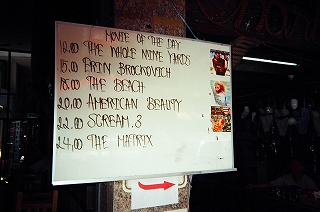 MOVIE OF THE DAY
12.00 THE WHOLE NINE YARDS
15.0 ERIN BROCKOVICH
18.00 THE BEACH
20,00 AMERICAN BEAUTY
22.00 SCREAM.3
24,00 THE MATRIX